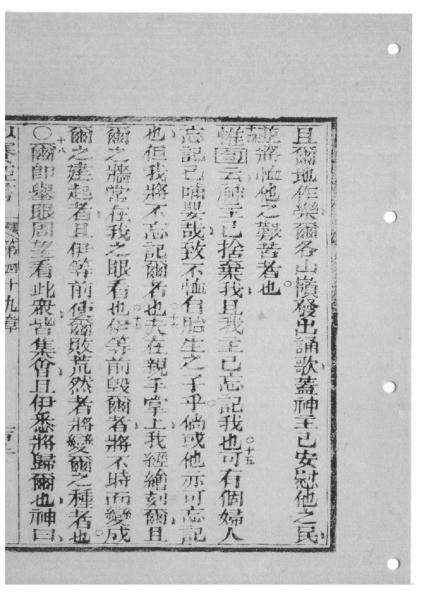 且爾地作樂爾各山嶺發出誦歌蓋神主已安慰他之民
並將恤他之艱苦者也
十四惟囯云神主已捨棄我且我主已忘記我也○十五可有個婦人
忘記己哺嬰哉致不恤自胎生之子乎倘或他亦可忘記
也但我將不忘記爾者也夫在親手掌上我經繪刻爾且
爾之牆常在我之眼看也伊等前毀爾者將不時而變成
爾之建起者且伊等前使爾敗荒然者將變爾之種者也
○十八爾即舉眼周望看此衆皆集會且伊悉將歸爾也神曰
第四十九章